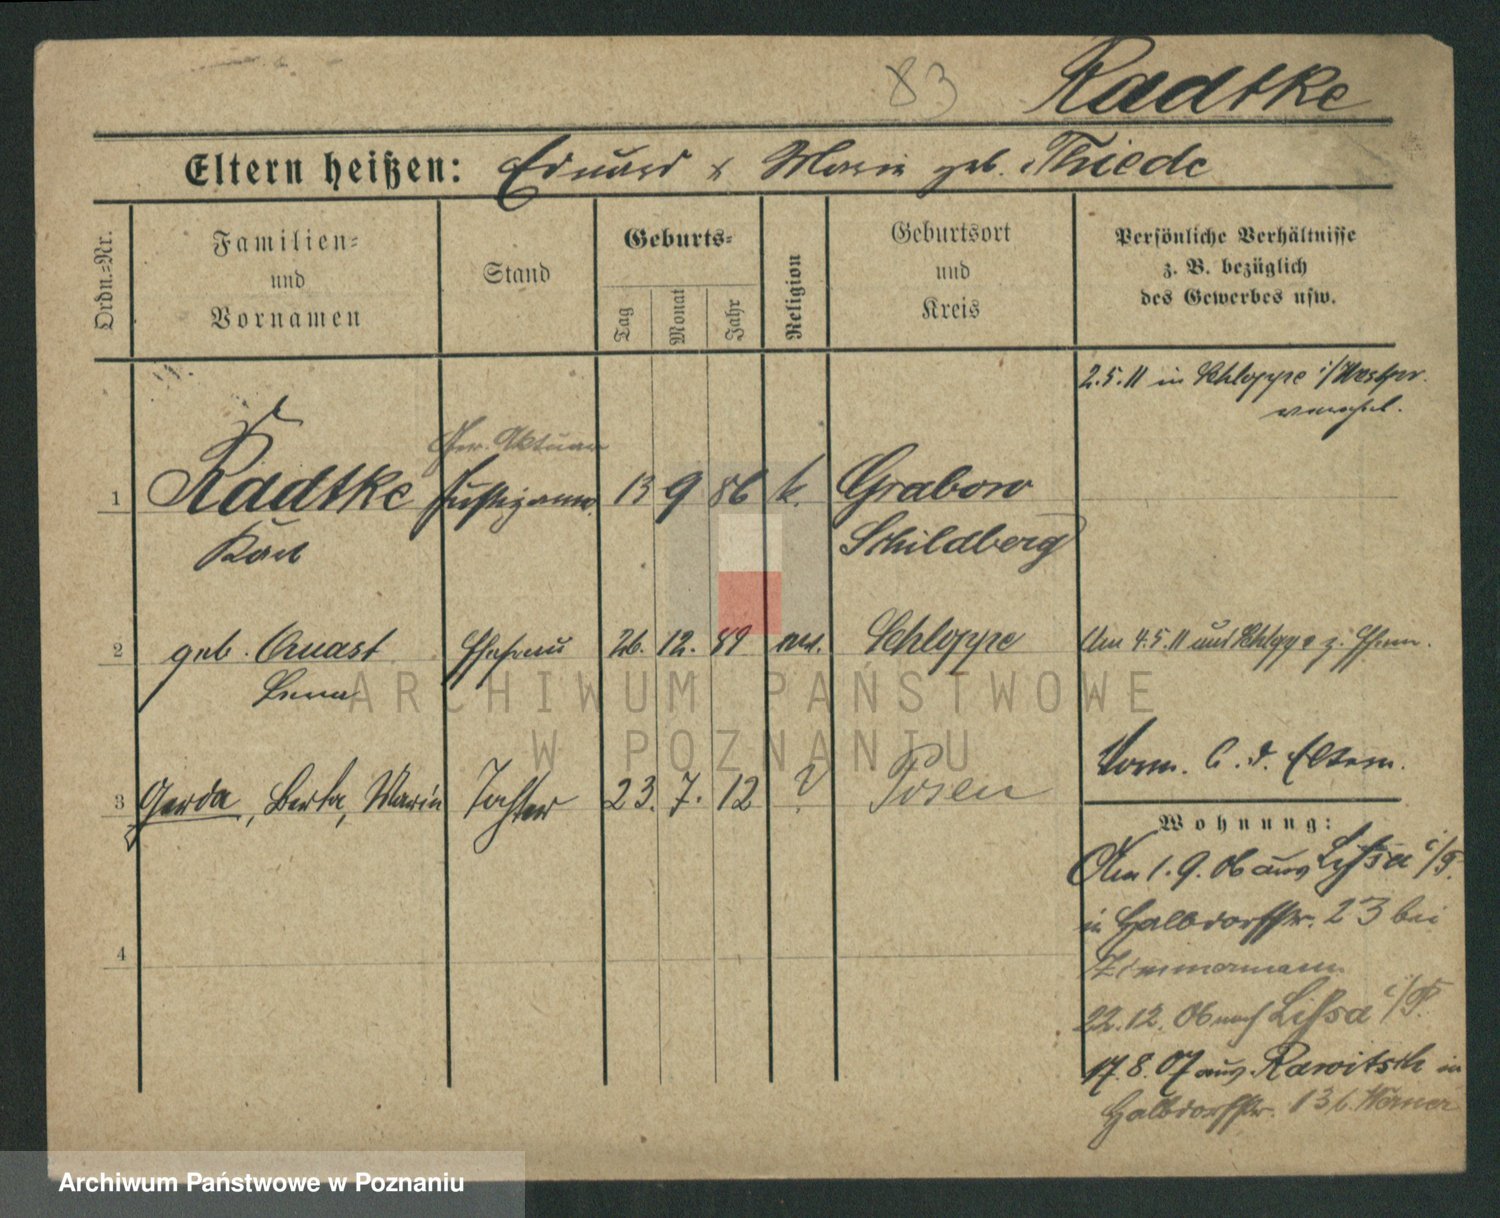 83 Radtke
Eltern heißen: Eduard & Marie geb. Thiede
Ordn.=Nr.
Familien=
und
Vornamen
Stand
Geburts=
Tag
Monat
Jahr
Religion
Geburtsort
und
Kreis
Persönliche Verhältnisse
z. B. bezüglich
des Gewerbes usw.
2.5.11 in Schloppe i/Westpr.
verehel.
Aktuar
1 Radtke Justizanw. 13 9 86 k. Grabow
Karl
Schildberg
2 geb. Quast Ehefrau 26. 12. 89 ev. Schloppe Am 4.5.11 aus Schloppe z. Ehem.
Lena
3 Gerda, Berta, Marie Tochter 23. 7. 12 ? Posen
b. d. Eltern.
Wohnung:
Am 1.9.06 aus Lissa i/P.
in Halbdorfstr. 23 bei
Zimmermann
22.12.06 nach Lissa i/P.
17.8.07 aus Rawitsch in
Halbdorfstr. 13 b. Werner
4
ARCHIWUM PAŃSTWOWE
W POZNANIU
Archiwum Państwowe w Poznaniu